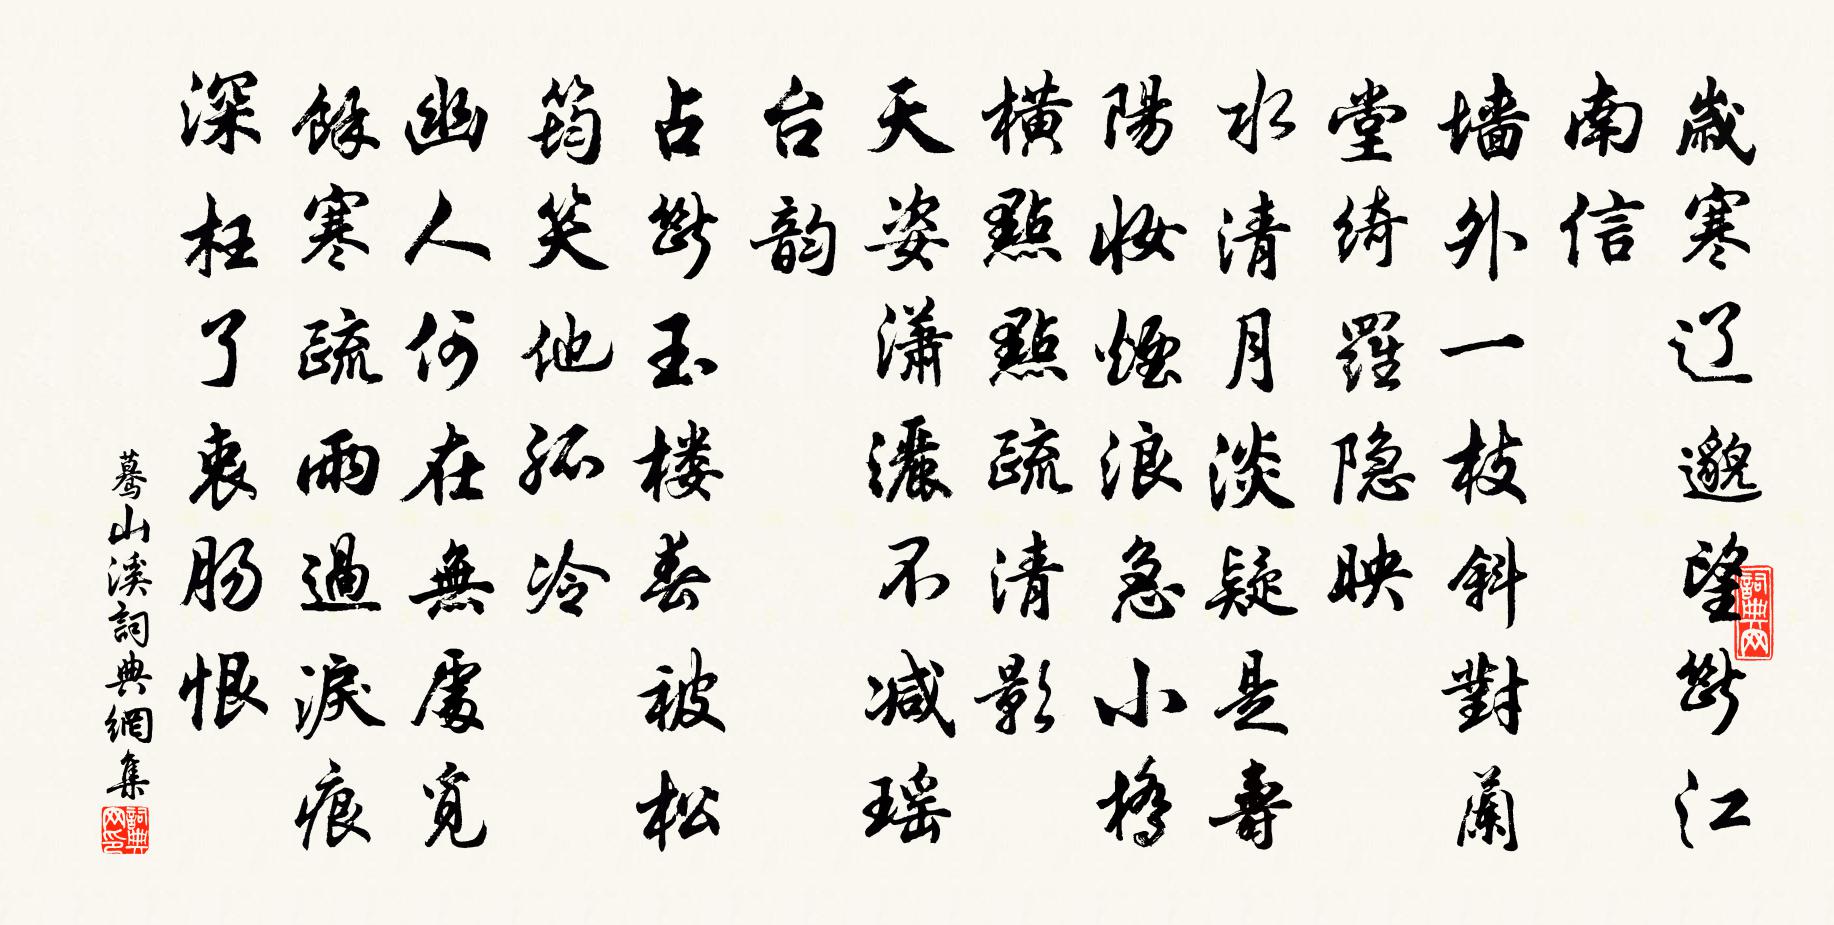 歲寒辽邈望斷江
南信
墙外一枝斜對蘭
堂綺羅隐映
水清月淡疑是壽
陽妝煙浪急小橋
橫點點疏清影
天姿瀟灑不减瑶
台韵
占斷玉楼春被松
筠笑他孤冷
幽人何在無處覓
餘寒疏雨過淚痕
深枉了衷肠恨
驀山溪詞典網集
詞典网
詞典网印